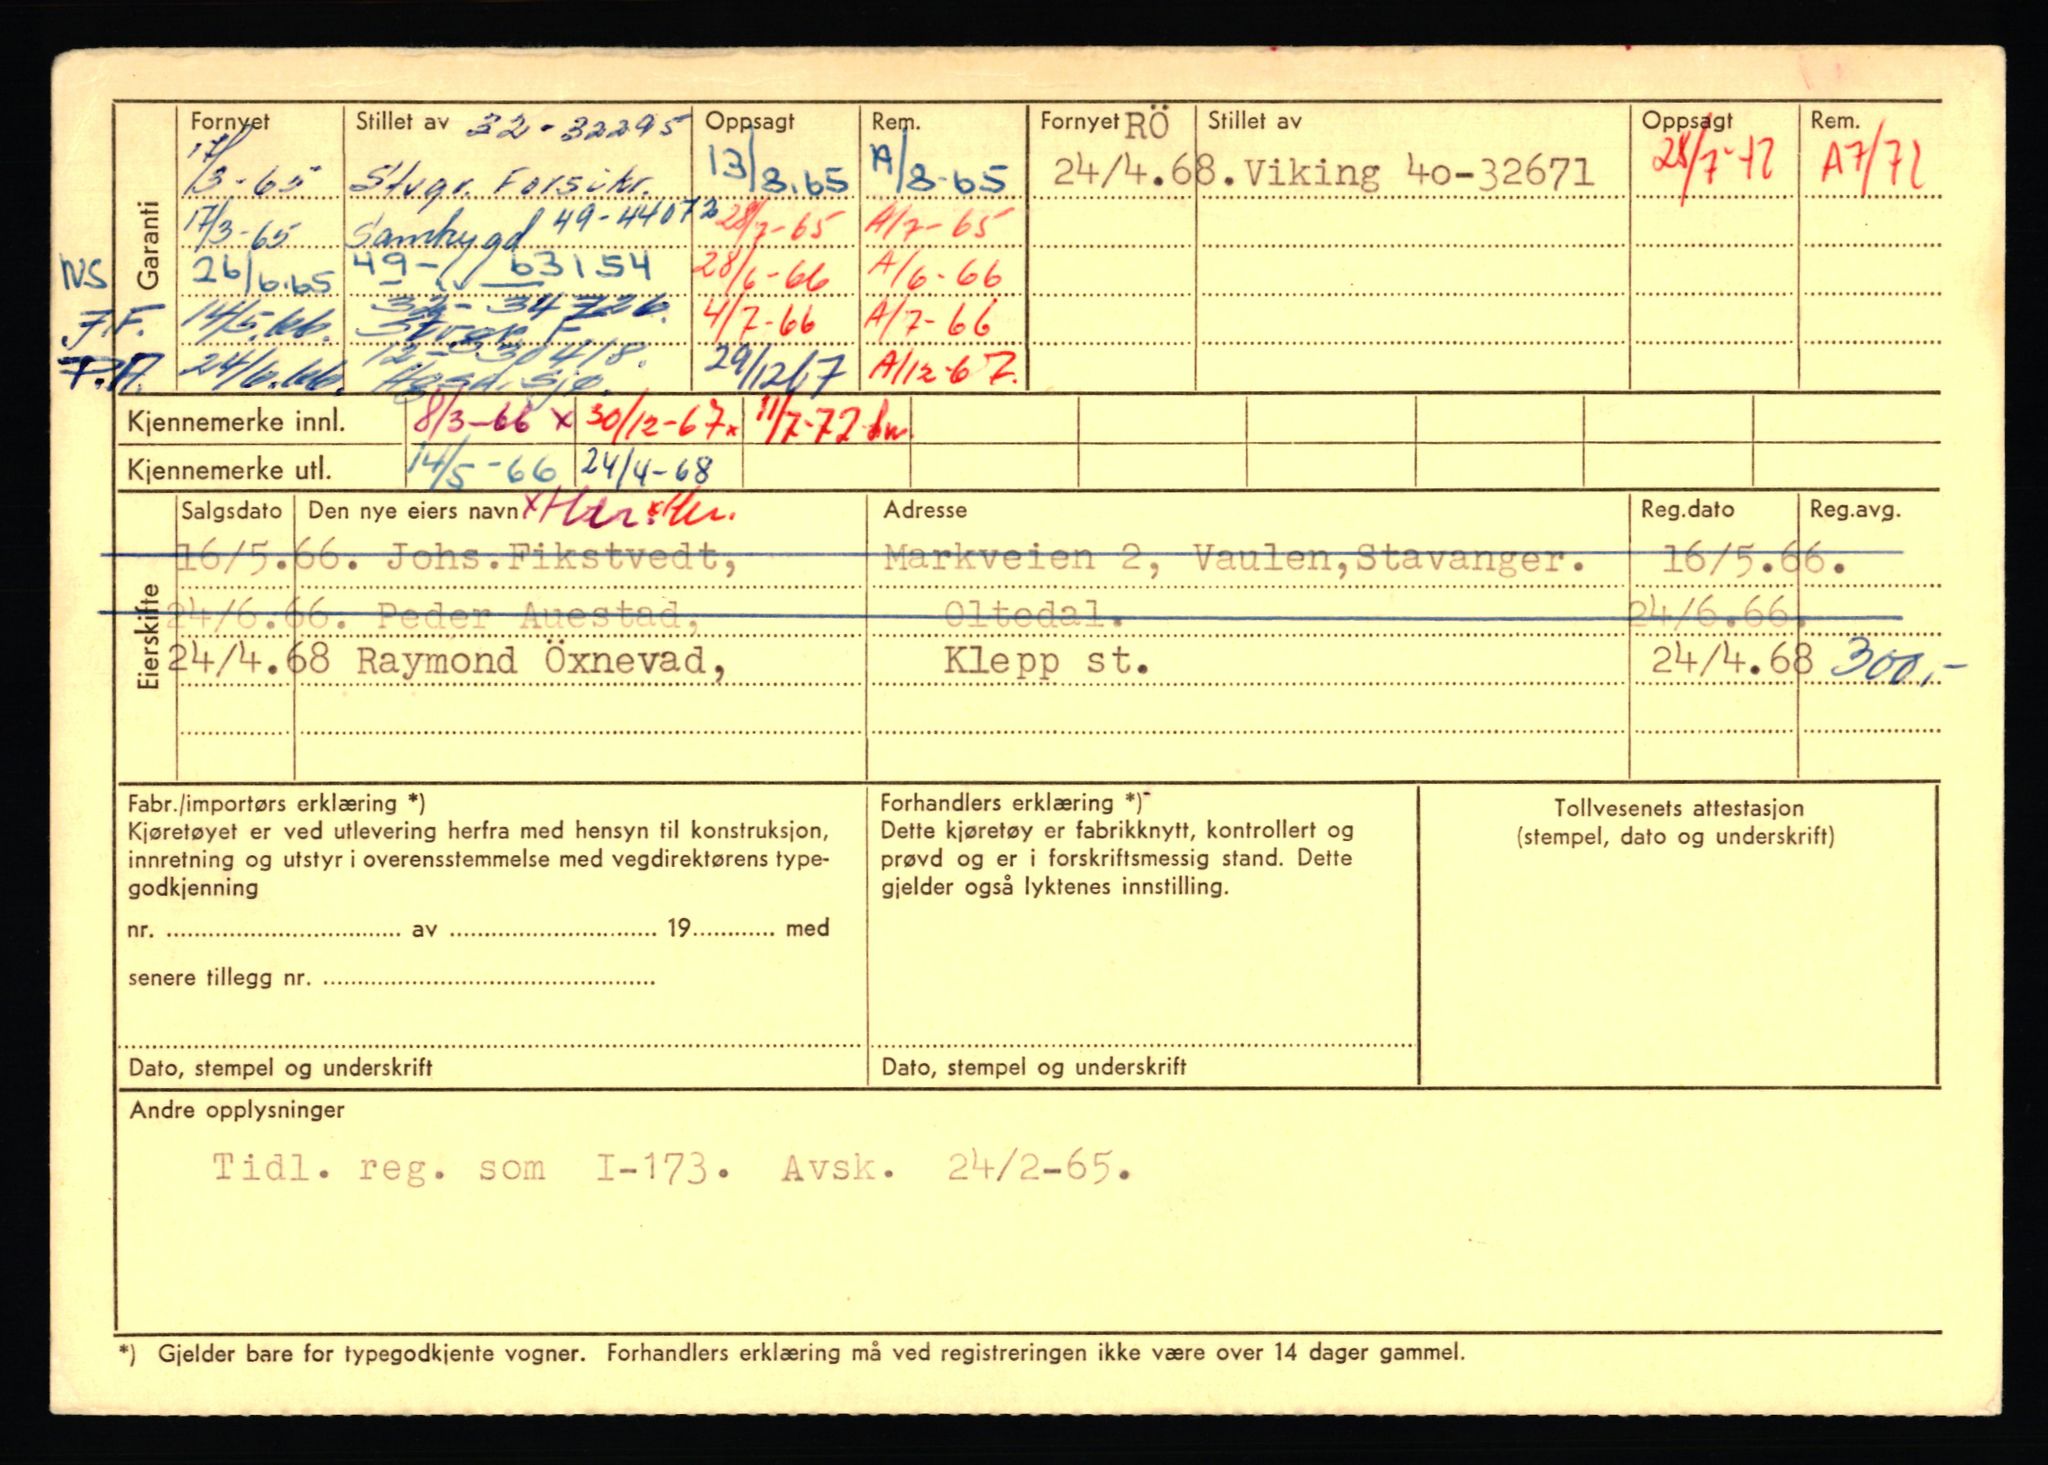 Fornyet Stillet av 32-32295 Oppsagt Rem. Fornyet RÖ Stillet av Oppsagt Rem.
17/3-65 Stvgr. Forsikr. 13/8.65 A/8-65 24/4.68. Viking 4o-32671 28/7-72 A7/72
17/3-65 Samhygd 49-44072 28/7-65 A/7-65
Garanti
NS 26/6.65 49- 63154 28/6-66 A/6-66
J.F. 14/5.66. 32-34726. 4/7-66 A/7-66
P.A. 24/6.66. 12-30418. 29/12/67 A/12-67.
Kjennemerke innl. 8/3-66 x 30/12-67x 11/7-72
Kjennemerke utl. 14/5-66 24/4-68
Salgsdato Den nye eiers navn Adresse Reg.dato Reg.avg.
Eierskifte
16/5.66. Johs.Fikstvedt, Markveien 2, Vaulen,Stavanger. 16/5.66.
24/6.66. Peder Auestad, Oltedal. 24/6.66.
24/4.68 Raymond Öxnevad, Klepp st. 24/4.68 300,-
Fabr./importørs erklæring *)
Kjøretøyet er ved utlevering herfra med hensyn til konstruksjon,
innretning og utstyr i overensstemmelse med vegdirektørens type-
godkjenning
nr. .......... av .......... 19.......... med
senere tillegg nr. ..........
Dato, stempel og underskrift
Forhandlers erklæring *)
Dette kjøretøy er fabrikknytt, kontrollert og
prøvd og er i forskriftsmessig stand. Dette
gjelder også lyktenes innstilling.
Dato, stempel og underskrift
Tollvesenets attestasjon
(stempel, dato og underskrift)
Andre opplysninger
Tidl. reg. som I-173. Avsk. 24/2-65.
*) Gjelder bare for typegodkjente vogner. Forhandlers erklæring må ved registreringen ikke være over 14 dager gammel.